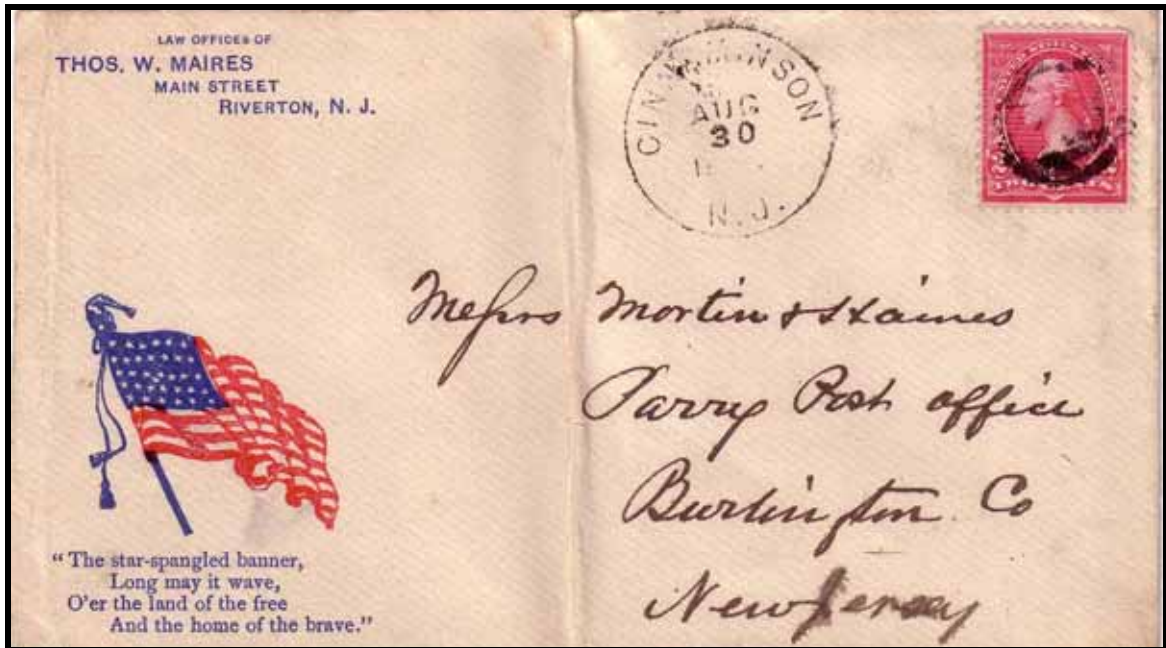 LAW OFFICES OF
THOS. W. MAIRES
MAIN STREET
RIVERTON, N. J.
CINNAMINSON
AUG
30
N.J.
Messrs Mortin & Haines
Parry Post office
Burlington Co
New Jersey
"The star-spangled banner,
Long may it wave,
O'er the land of the free
And the home of the brave."